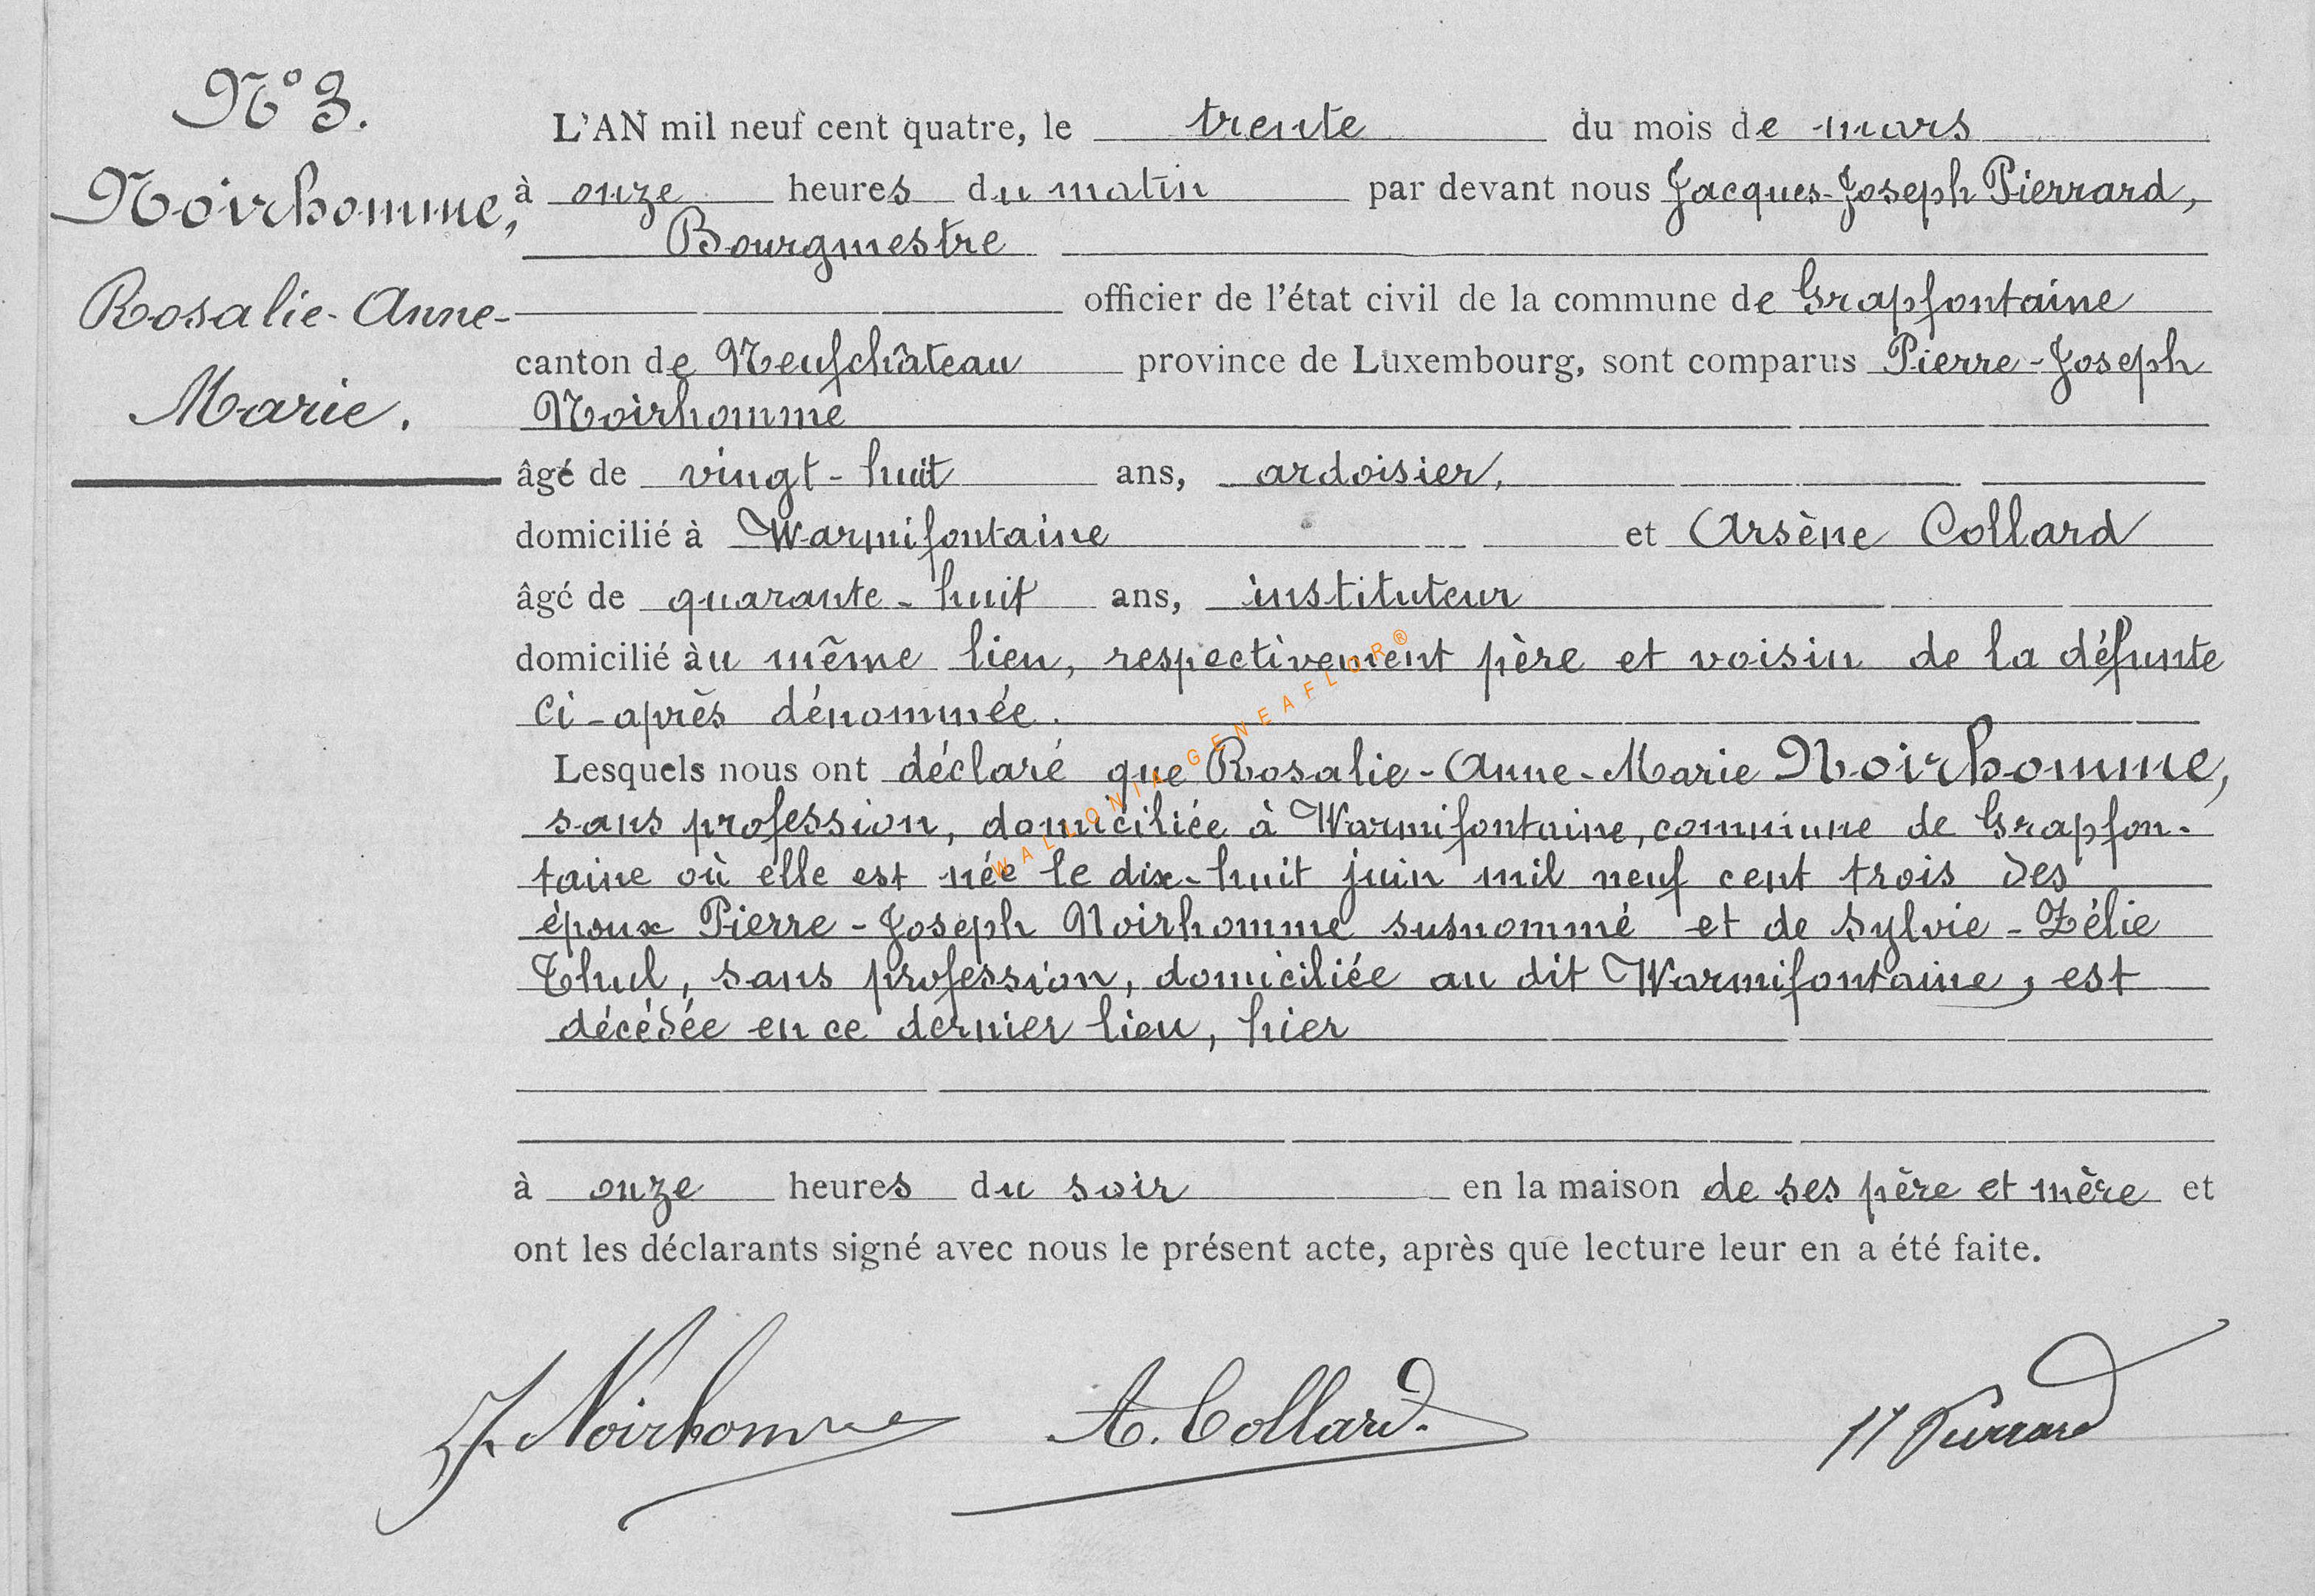 N° 3.
Noirhomme,
Rosalie-Anne-
Marie.
L'AN mil neuf cent quatre, le trente du mois de mars
à onze heures du matin par devant nous Jacques-Joseph Pierrard,
Bourgmestre
officier de l'état civil de la commune de Grapfontaine
canton de Neufchâteau province de Luxembourg, sont comparus Pierre-Joseph
Noirhomme
âgé de vingt-huit ans, ardoisier,
domicilié à Warmifontaine et Arsène Collard
âgé de quarante-huit ans, instituteur
domicilié àu même lieu, respectivement père et voisin de la défunte
ci-après dénommée.
Lesquels nous ont déclaré que Rosalie-Anne-Marie Noirhomme,
sans profession, domiciliée à Warmifontaine, commune de Grapfon-
taine où elle est née le dix-huit juin mil neuf cent trois des
époux Pierre-Joseph Noirhomme susnommé et de Sylvie-Zélie
Thul, sans profession, domiciliée au dit Warmifontaine, est
décédée en ce dernier lieu, hier
à onze heures du soir en la maison de ses père et mère et
ont les déclarants signé avec nous le présent acte, après que lecture leur en a été faite.
J. Noirhomme A. Collard. JJ Pierrard
WALLONIA GENEAFLOR®